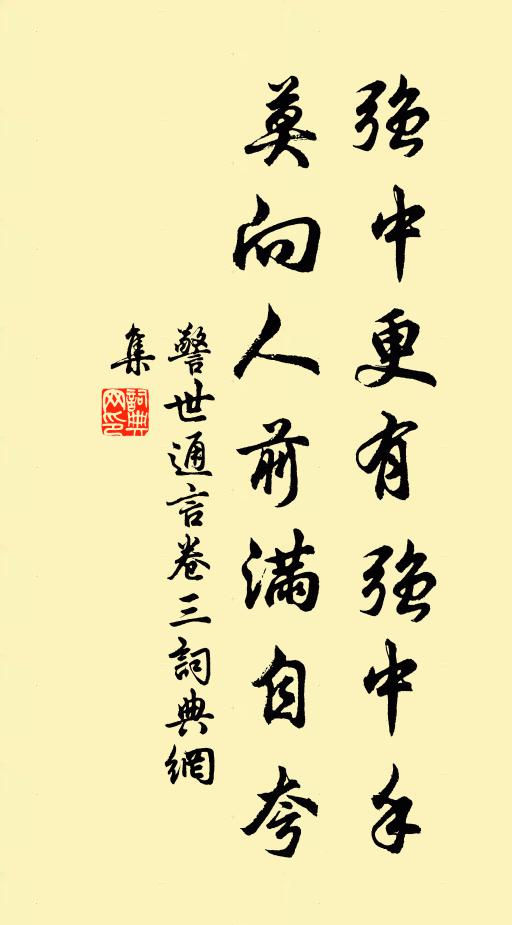 強中更有強中手
莫向人前满自夸
警世通言卷三詞典網
集
詞典
网印